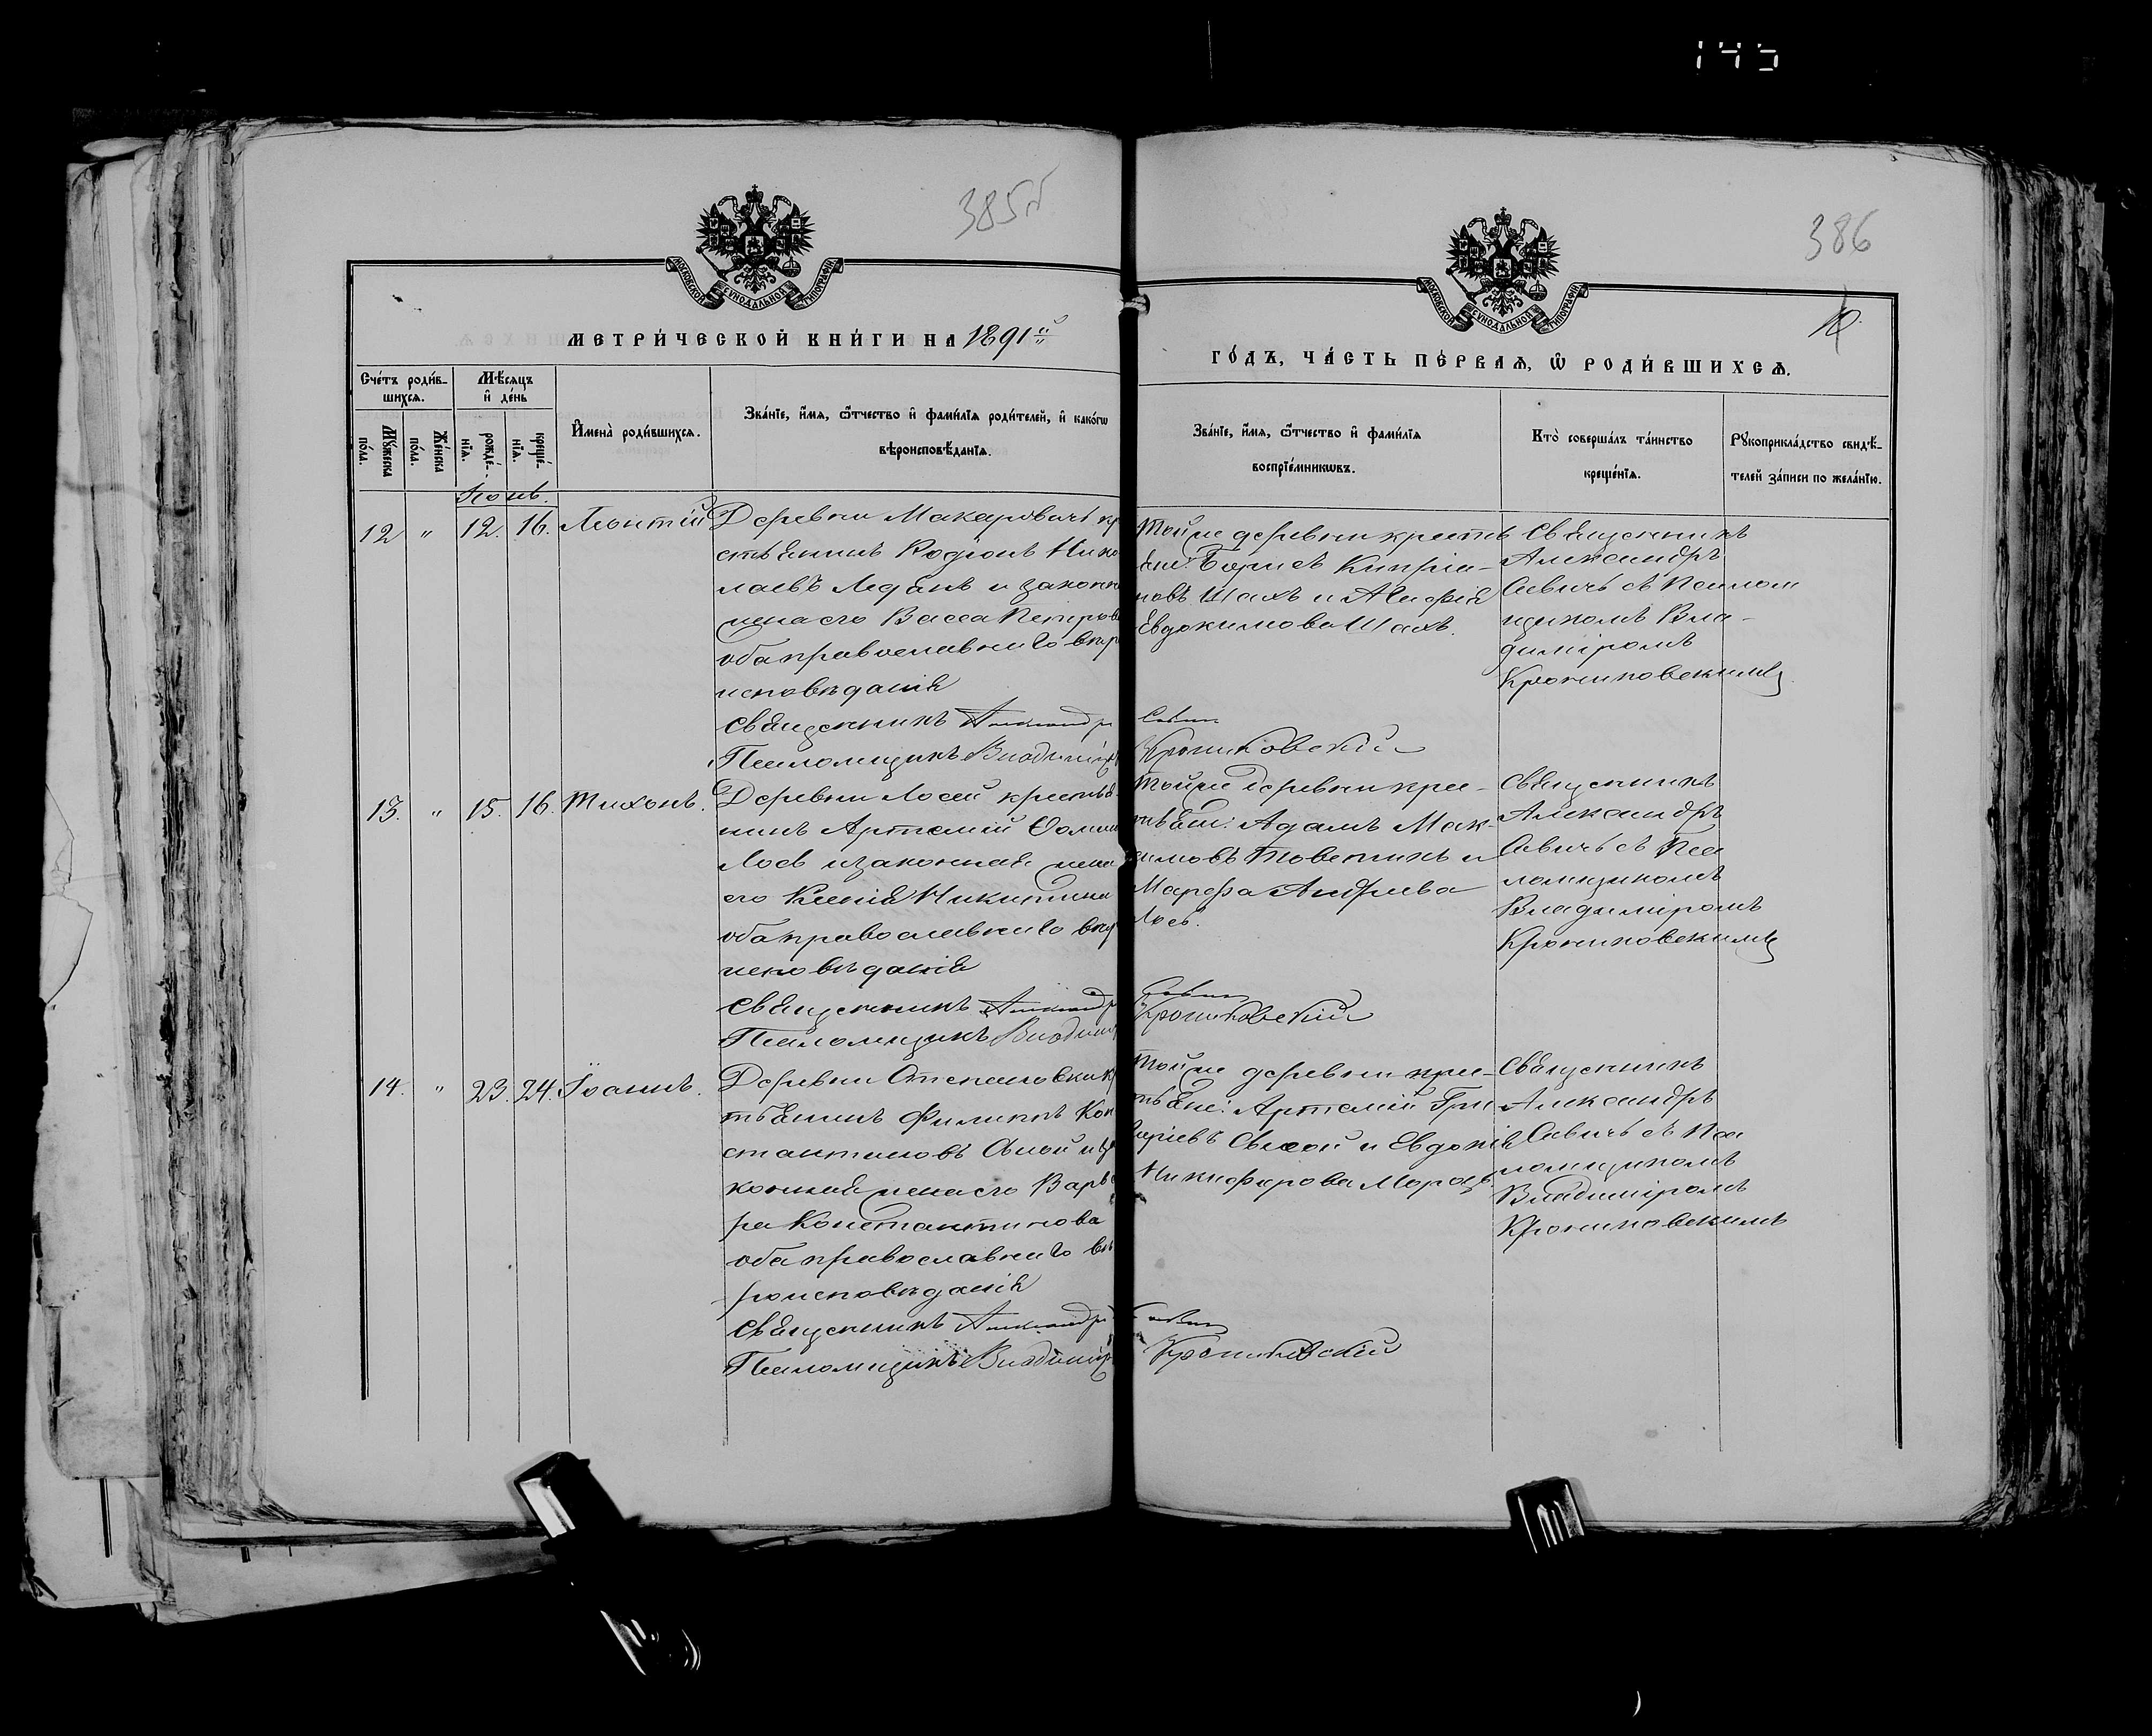 145
385об
386
МОСКОВСКОЙ СѴНОДАЛЬНОЙ ТИПОГРАФІИ
МОСКОВСКОЙ СѴНОДАЛЬНОЙ ТИПОГРАФІИ
10
МЕТРИ́ЧЕСКОЙ КНИ́ГИ НА 1891й
ГО́ДЪ, ЧА́СТЬ ПЕ́РВАѦ, Ѡ҆ РОДИ́ВШИХСѦ.
Сче́тъ роди́в-
шихсѧ.
Мѣ́сѧцъ
и҆ де́нь
Мꙋ́жеска
по́ла.
Же́нска
по́ла.
рожде́-
нїѧ.
креще́-
нїѧ.
И҆мена̀ роди́вшихсѧ.
Зва́нїе, и҆́мѧ, ѻ҆́тчество и҆ фами́лїѧ роди́телей, и҆ како́гѡ
вѣроисповѣ́данїѧ.
Зва́нїе, и҆́мѧ, ѻ҆́тчество и҆ фами́лїѧ
воспрїе́мникѡвъ.
Кто̀ соверша́лъ та́инство
креще́нїѧ.
Рꙋкоприкла́дство свидѣ́-
телей за́писи по жела́нїю.
Іюнь.
12 " 12. 16. Леонтій
Деревни Макаровичъ кр
стьянинъ Родіонъ Нико
лаевъ и законн
жена его Васса Петров
оба православнаго вѣр
исповѣданія
Священникъ Александръ
Псаломщикъ Владимір
Тойже деревни крестья
Борисъ Кипріа-
новъ Шахъ и
Евдокимова Шахъ.
Савич
Крониковскій
Священникъ
Александръ
Савичъ съ Псалом
щикомъ Вла-
диміромъ
Крониковскимъ
13. " 15. 16. Тихонъ.
Деревни Лосей крестья-
нинъ Артемій Ѳомин
Лось и законная жена
его Ксенія Никитина
оба православнаго вѣр
исповѣданія
Священникъ Александр
Псаломщикъ Владимір
Тойже деревни крес-
тьяне: Адамъ Мак-
симовъ и
Марфа Андреева
Лось.
Савич
Крониковскій
Священникъ
Александръ
Савичъ съ Пса
ломщикомъ
Владиміромъ
Крониковскимъ
14. " 23. 24. Іоаннъ.
Деревни Степановки кр
тьянинъ Филиппъ Кон
стантиновъ и за
конная жена его Варва
ра Константинова
оба православнаго вѣ
роисповѣданія
Священникъ Александръ
Псаломщикъ Владимір
Тойже деревни крес-
тьяне: Артемій Гри
горіевъ и Евдокія
Никифорова Морозъ.
Савич
Крониковскій
Священникъ
Александръ
Савичъ съ Пса
ломщикомъ
Владиміромъ
Крониковскимъ